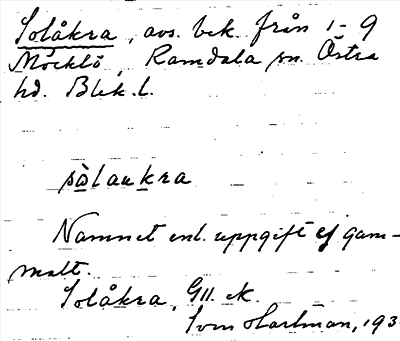 Solåkra, avs. bek. från 1-9
Möcklö, Ramdala sn. Östra
hd. Blek. l.
sòlaukra
Namnet enl. uppgift ej gam-
malt.
Solåkra, GII. ek.
Sven Hartman, 193